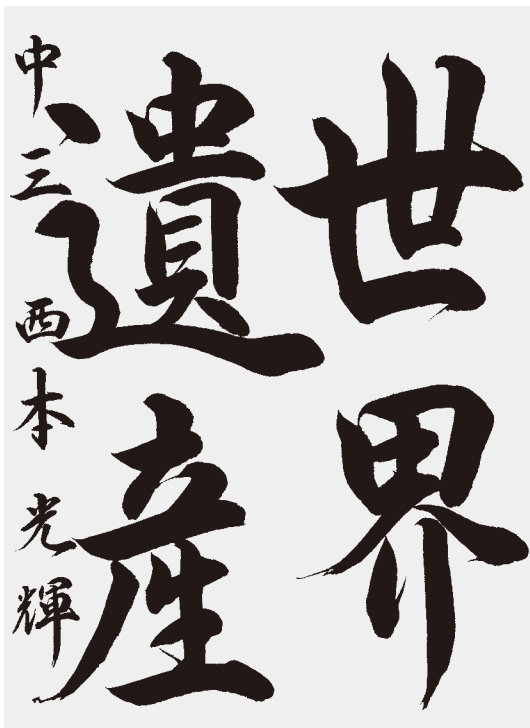 世界
遺産
中三 西本光輝